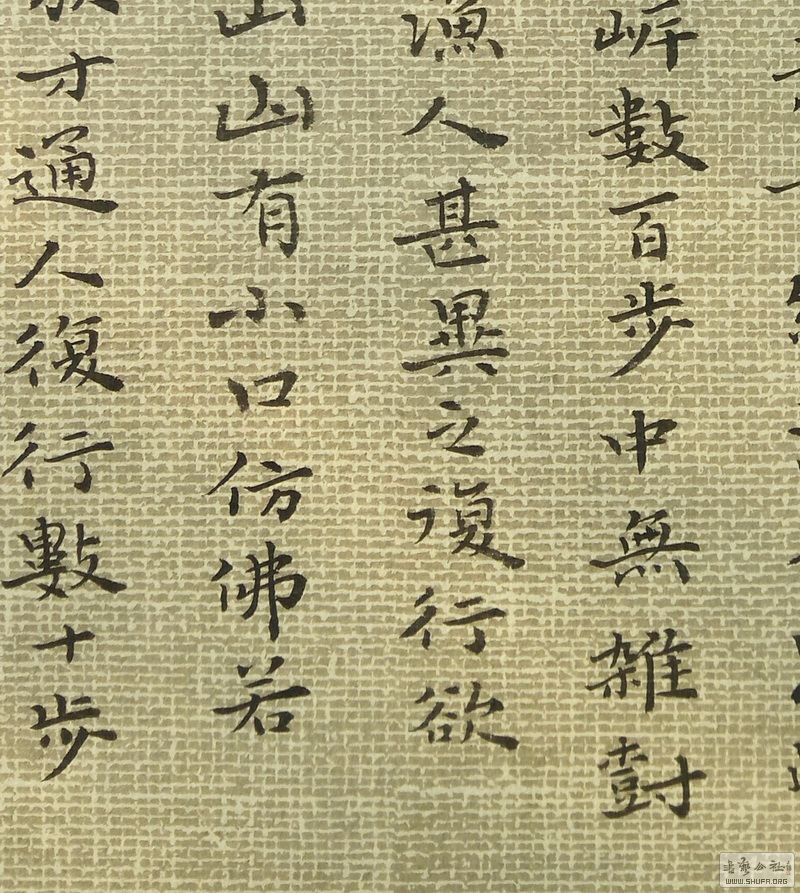 岍數百步中無雜尌
漁人甚異之復行欲
山山有小口仿佛若
才通人復行數十步
書藝公社
WWW.SHUFA.ORG